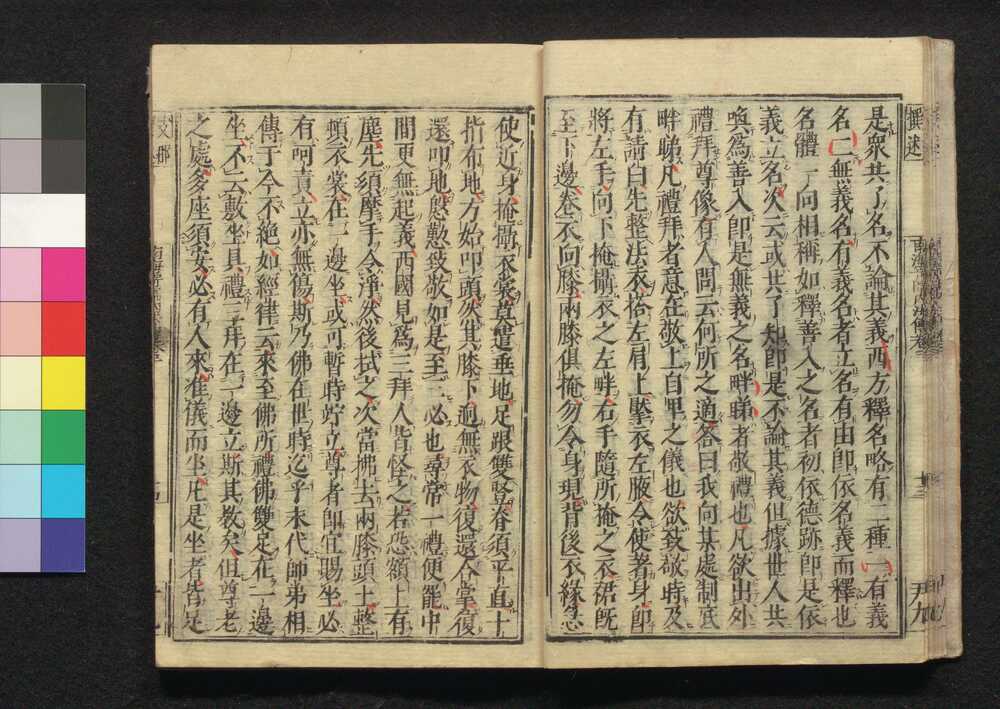 是眾共了名不論其義西方釋名略有二種一有義
名二無義名有義名者立名有由即依名義而釋也
名體一向相稱如釋善入之名者初依德跡即是依
義立名次云或共了知即是不論其義但據世人共
喚為善入即是無義之名畔睇者敬禮也凡欲出外
禮拜尊像有人問云何所之適答曰我向某處制底
畔睇凡禮拜者意在敬上自卑之儀也欲致敬時及
有請白先整法衣搭左肩上擪衣左腋令使著身即
將左手向下掩攝衣之左畔右手隨所掩之衣裾既
至下邊卷衣向膝兩膝俱掩勿令身現背後衣緣急
使近身掩攝衣裳莫遣垂地足跟雙豎脊須平直十
指布地方始叩頭然其膝下迥無衣物復還合掌復
還叩地慇懃致敬如是至三必也尋常一禮便罷中
間更無起義西國見為三拜人皆怪之若恐額上有
塵先須摩手令淨然後拭之次當拂去兩膝頭土整
頓衣裳在一邊坐或可暫時竚立尊者即宜賜坐必
有呵責立亦無傷斯乃佛在世時迄乎末代師弟相
傳于今不絕如經律云來至佛所禮佛雙足在一邊
坐不云敷坐具禮三拜在一邊立斯其教矣但尊老
之處多座須安必有人來准儀而坐凡是坐者皆足